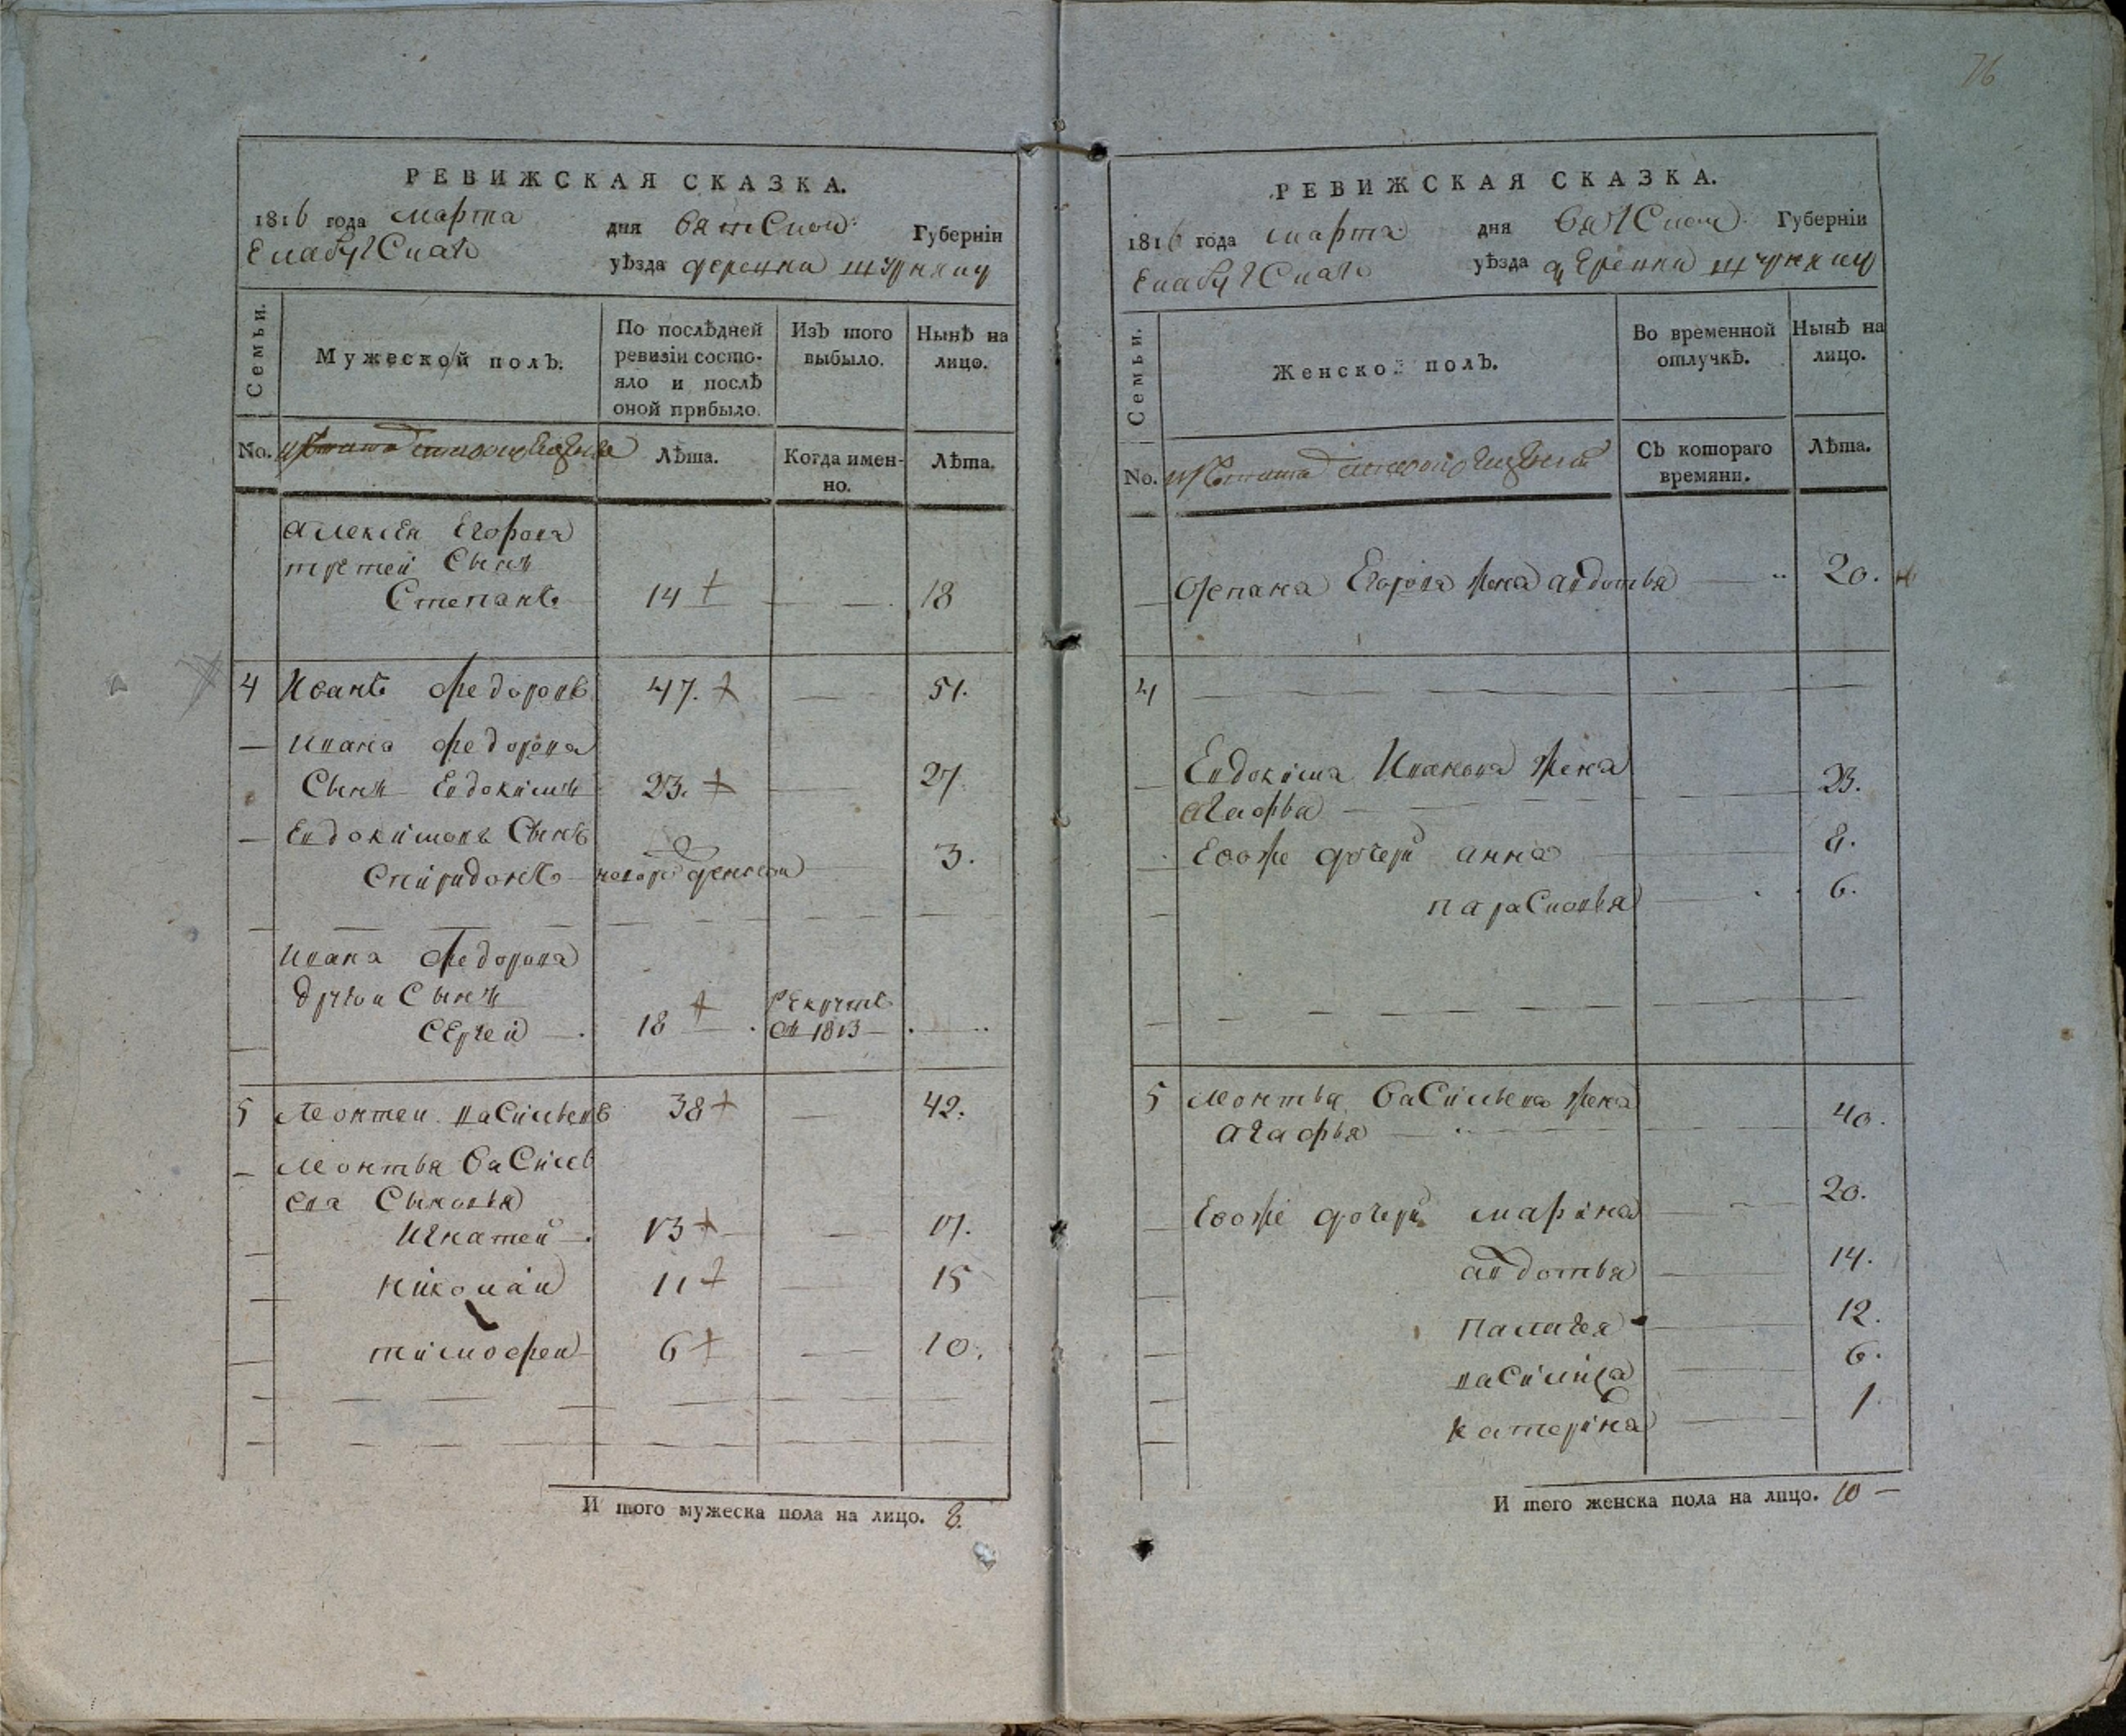 76
РЕВИЖСКАЯ СКАЗКА.
1816 года марта дня Вятской Губерніи
Елабугскаго уѣзда деревни
Семьи. Мужеской полъ. По послѣдней ревизіи состояло и послѣ оной прибыло. Изъ того выбыло. Нынѣ на лицо.
No. Лѣта. Когда именно. Лѣта.
Алексѣя Егорова
третей Сынъ
Степанъ 14 — — 18
4 Иванъ Федоровъ 47. — 51.
— Ивана Федорова
Сынъ Евдокимъ 23. — 27.
— Евдокимовъ Сынъ
Спиридонъ новорожденной 3.
Ивана Федорова
другой Сынъ
Сергей — 18 рекрутъ въ 1813 —
5 Леонтей Васильевъ 38 — 42.
— Леонтья Василь
ева Сыновья
Игнатей — 13 — 17.
Николай 11 — 15
Тимофей 6 — 10.
И того мужеска пола на лицо. 8.
РЕВИЖСКАЯ СКАЗКА.
1816 года марта дня Вятской Губерніи
Елабугскаго уѣзда деревни
Семьи. Женской полъ. Во временной отлучкѣ. Нынѣ на лицо.
No. Съ котораго времяни. Лѣта.
Степана Егорова жена авдотья — 20.
4 — — — —
Евдокима Иванова жена
агафья — — 23.
Евоже дочери анна — 8.
парасковья — 6.
5 Леонтья Васильева жена
агафья — — 40.
Евоже дочери марина — 20.
авдотья — 14.
палагея — 12.
василиса — 6.
катерина — 1
И того женска пола на лицо. 10 —